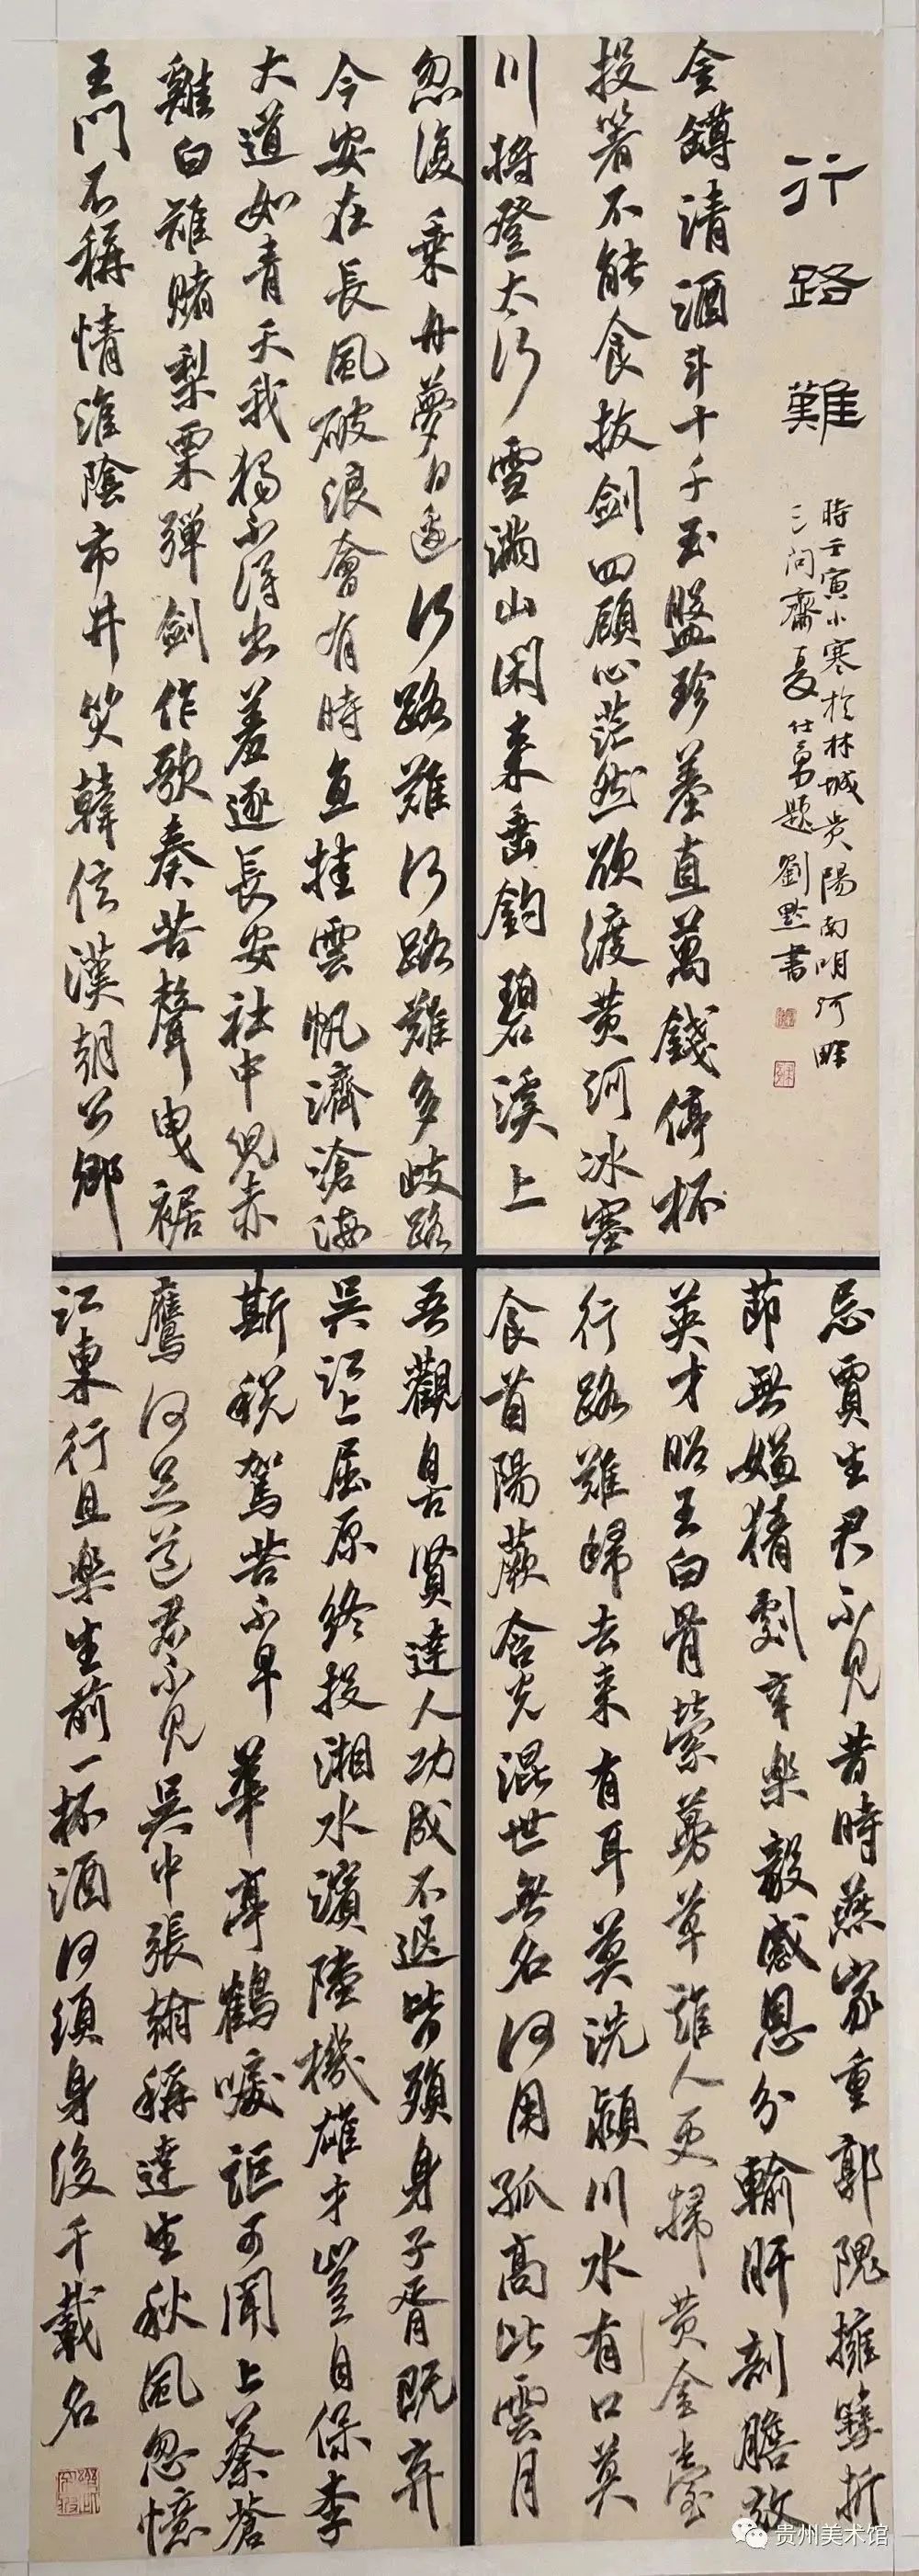 行路難
時壬寅小寒於林城贵陽南明河畔
三问齋夏仕勇題劉默書
金罇清酒斗十千玉盤珍羞直萬錢停杯
投箸不能食拔劍四顧心茫然欲渡黄河冰塞
川將登太行雪滿山閑来垂釣碧溪上
忽復乘舟夢日邊行路難行路難多歧路
今安在長風破浪會有時直挂雲帆濟滄海
大道如青天我獨不得出羞逐長安社中兒赤
雞白雉賭梨栗彈劍作歌奏苦聲曳裾
王門不稱情淮陰市井笑韓信漢朝公卿
忌賈生君不見昔時燕家重郭隗擁篲折
節無嫌猜劇辛樂毅感恩分輸肝剖膽效
英才昭王白骨縈蔓草誰人更掃黄金臺
行路難歸去来有耳莫洗潁川水有口莫
食首陽蕨含光混世無名何用孤高比雲月
吾觀自古賢達人功成不退皆殞身子胥既弃
吴江上屈原終投湘水濱陸機雄才豈自保李
斯税駕苦不早華亭鶴唳詎可聞上蔡蒼
鷹何足道君不見吴中張翰稱達生秋風忽憶
江東行且樂生前一杯酒何須身後千載名
贵州美术馆